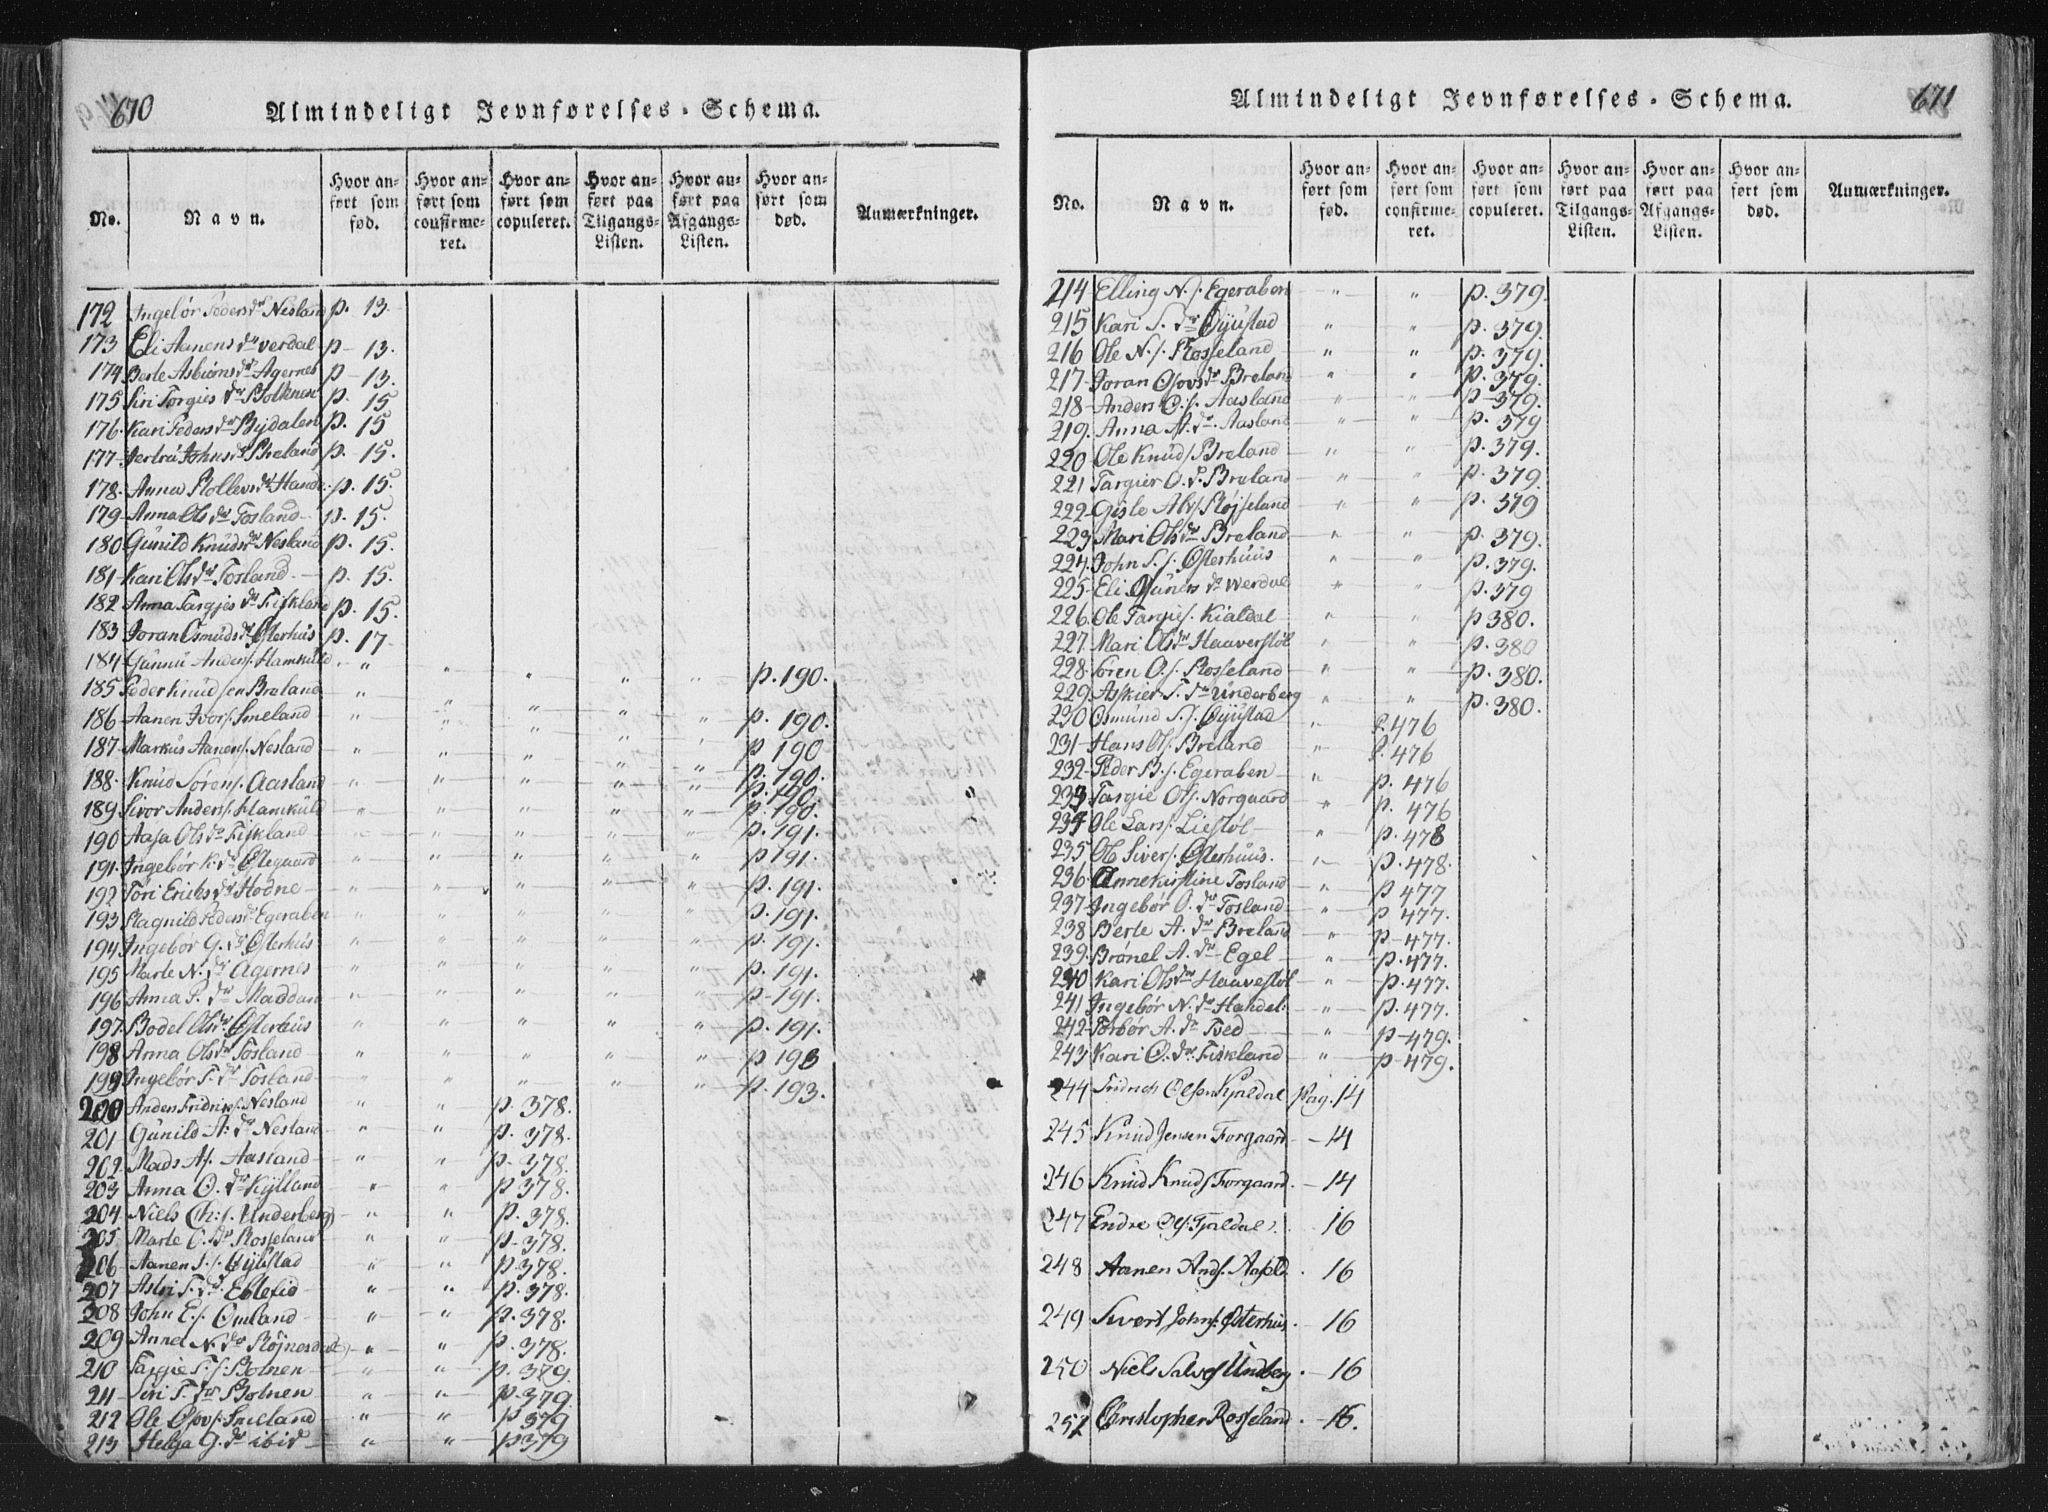 670
Almindeligt Jevnførelses-Schema.
No. Navn. Hvor anført som fød. Hvor anført som confirmeret. Hvor anført som copuleret. Hvor anført paa Tilgangs-Listen. Hvor anført paa Afgangs-Listen. Hvor anført som død. Anmærkninger.
172 Ingebør Peders dr Nesland p. 13.
173 Eli Aanens dr verdal p - 13.
174 Berte Asbiøns dr Agernes p - 13.
175 Siri Torgies dr p. 15
176. Kari Peders dr Bydalen p. 15
177 Johns dr p. 15.
178. Anna dr p. 15.
179 Anna Ols dr Fosland p. 15.
180 Günild Knüds dr Nesland p. 15.
181 Kari Ols dr Fosland. p. 15.
182 Anna Targjes dr Fiskland p. 15.
183 Joran Osmüds dr Østerhüs p. 17
184 Günnü Anders. " " " " " p. 190.
185 Peder Knüdsen Breland " " " " "
186 Aanen Ivers. Smeland " " " " " p. 190.
187 Markus Aanens. Nesland " " " " " p 190
188. Knüd Sørens. Aasland " " " " " p. 190.
189 Sivor Anders. " " " " " p. 190.
190 Aasa Ols dr Fiskland " " " " " p. 191.
191. Ingebør K. dr Ølegaard " " " " " p 191.
192 Tøri Eriks dr Hodne " " " " " p. 191.
193 Ragnild Peders dr Egeraben " " " " " p. 191.
194 Ingebør G. dr Østerhüs " " " " " p. 191.
195 Marte N. dr Agernes " " " " " p. 191.
196 Anna P. dr Maddan " " " " " p - 191.
197 Bodel Ols dr Østerhüs " " " " " p. 191.
198 Anna Ols dr Fosland " " " " " p 193
199 Ingebør T. dr Fosland " " " " " p. 193.
200 Anden Fridriks. Nesland " " p. 378.
201 Günild A. dr Nesland " " p. 378.
202 Mads A s. Aasland " " p - 378.
203 Anna O. dr Kylland " " p 378.
204. Niels Ch: s. Underberg " " p. 378.
205. Marte O. dr Rosseland " " p - 378.
206 Aanen S. s. Øyüstad " " p 378.
207 Astri T. dr Eptetid " " p. 378.
208 John E s. Omland " " p. 378.
209 Anne N. dr Røjnesdal " " p. 378.
210 Targie T. s. Bolnen " " p. 379.
211 Siri T. dr Bolnen " " p. 379.
212 Ole Smeland " " p 379
213 Helga G. dr ibid " " p 379
671
Almindeligt Jevnførelses-Schema.
No. Navn. Hvor anført som fød. Hvor anført som confirmeret. Hvor anført som copuleret. Hvor anført paa Tilgangs-Listen. Hvor anført paa Afgangs-Listen. Hvor anført som død. Anmærkninger.
214 Elling N. s. Egeraben " " p. 379.
215 Kari S. dr Øyüstad " " p. 379.
216 Ole N. s. Rosseland " " p. 379.
217 Joran Olovs dr Breland " " p. 379.
218 Anders O. s. Aasland " " p - 379.
219. Anna A. dr. Aasland " " p. 379
220 Ole Knüds Breland " " p. 379.
221 Targier O. d. Breland " " p. 379
222 Gisle Alvs Røjseland " " p. 379
223 Mari Ols dr Breland " " p. 379.
224 John S. s. Østerhüüs " " p. 379.
225. Eli dr Werdal " " p. 379
226 Ole Targies. Kialdal " " p 380.
227. Mari Ols dr Haaverstøl " " p. 380
228. Søren O. s. Rosseland " " p. 380.
229 Askier T. dr Ünderberg " " p. 380.
230 Osmund S. s. Øyüstad " P. 476
231 Hans Ols. Breland " P. 476
232 Peder B. s. Egeraben " p. 476
233 Targie Ols. Norgaard " p. 476
234 Ole Lars. Liestøl " p. 478
235 Ole Sivers. Østerhüüs. " p. 478.
236. Annekirstine Fosland " p 477
237 Ingebør O. dr Fosland " p 477.
238 Berte A. dr Breland " p - 477.
239. Brønel A. dr Egel " p. 477.
240 Kari Ols dr Haavestøl " p. 477.
241 Ingebør N. dr Handel. " p. 477.
242 Torbør A. dr Tved " p - 479.
243 Kari O. dr Fiskland " p - 479.
244 Fridrich Olsen Pag. 14
245 Knud Jensen Forgaard - 14
246 Knud Knuds Forgaard. - 14
247 Endre Ols. 16
248 Aanen Ands. 16
249 Sivert Johns. Østerhus. - 16
250 Niels Salves Undberg. - 16
251 Christopher Rosseland. - 16.